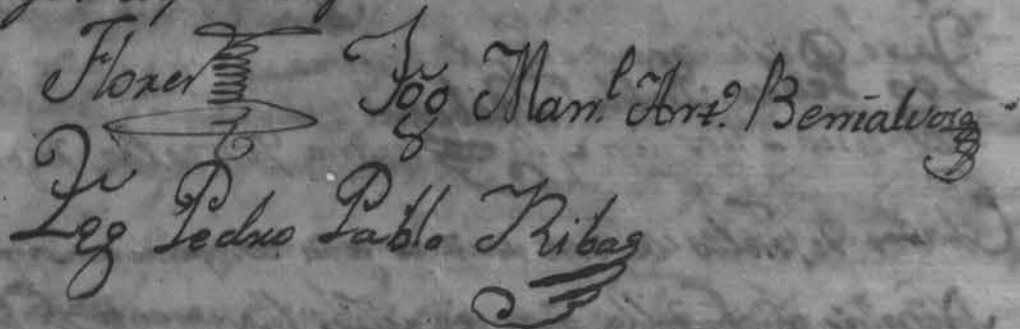 Flores Tgo Man.l Ant.o Benialvorg
Tgo Pedro Pablo Ribas